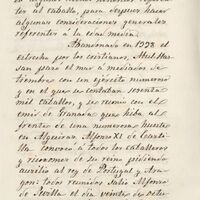 ter al caballo, para despues hacer
algunas consideraciones generales
referentes a la edad media.
Abandonado en 1338 el
estrecho por los cristianos, Abul-Has
san pasó el mar á mediados de
con un ejército numeroso
y en el que se contaban sesenta
mil caballos, y se reunió con el
emir de Granada que habia al
frente de una numerosa hueste
en Algeciras. Alfonso XI de Casti-
lla convocó á todos los caballeros
y ricoshomes de su reino pidiendo
auxilio al rey de Portugal y Ara-
gon: todos reunidos salió Alfonso
de Sevilla el dia veinte de octu